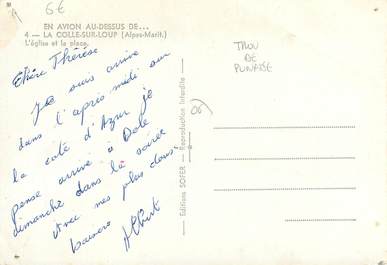 6€
EN AVION AU-DESSUS DE...
4 — LA COLLE-SUR-LOUP (Alpes-Marit.)
L'église et la place.
Chère Thérèse
Je suis arrivé
dans l'après midi sur
la coté d'Azur je
pense arrivé à Dole
dimanche dans la soirée
Avec mes plus doux
baisers Albert
Editions SOFER — Reproduction Interdite
TROU
DE
PUNAISE
06